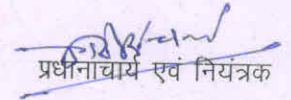 प्रधानाचार्य एवं नियंत्रक